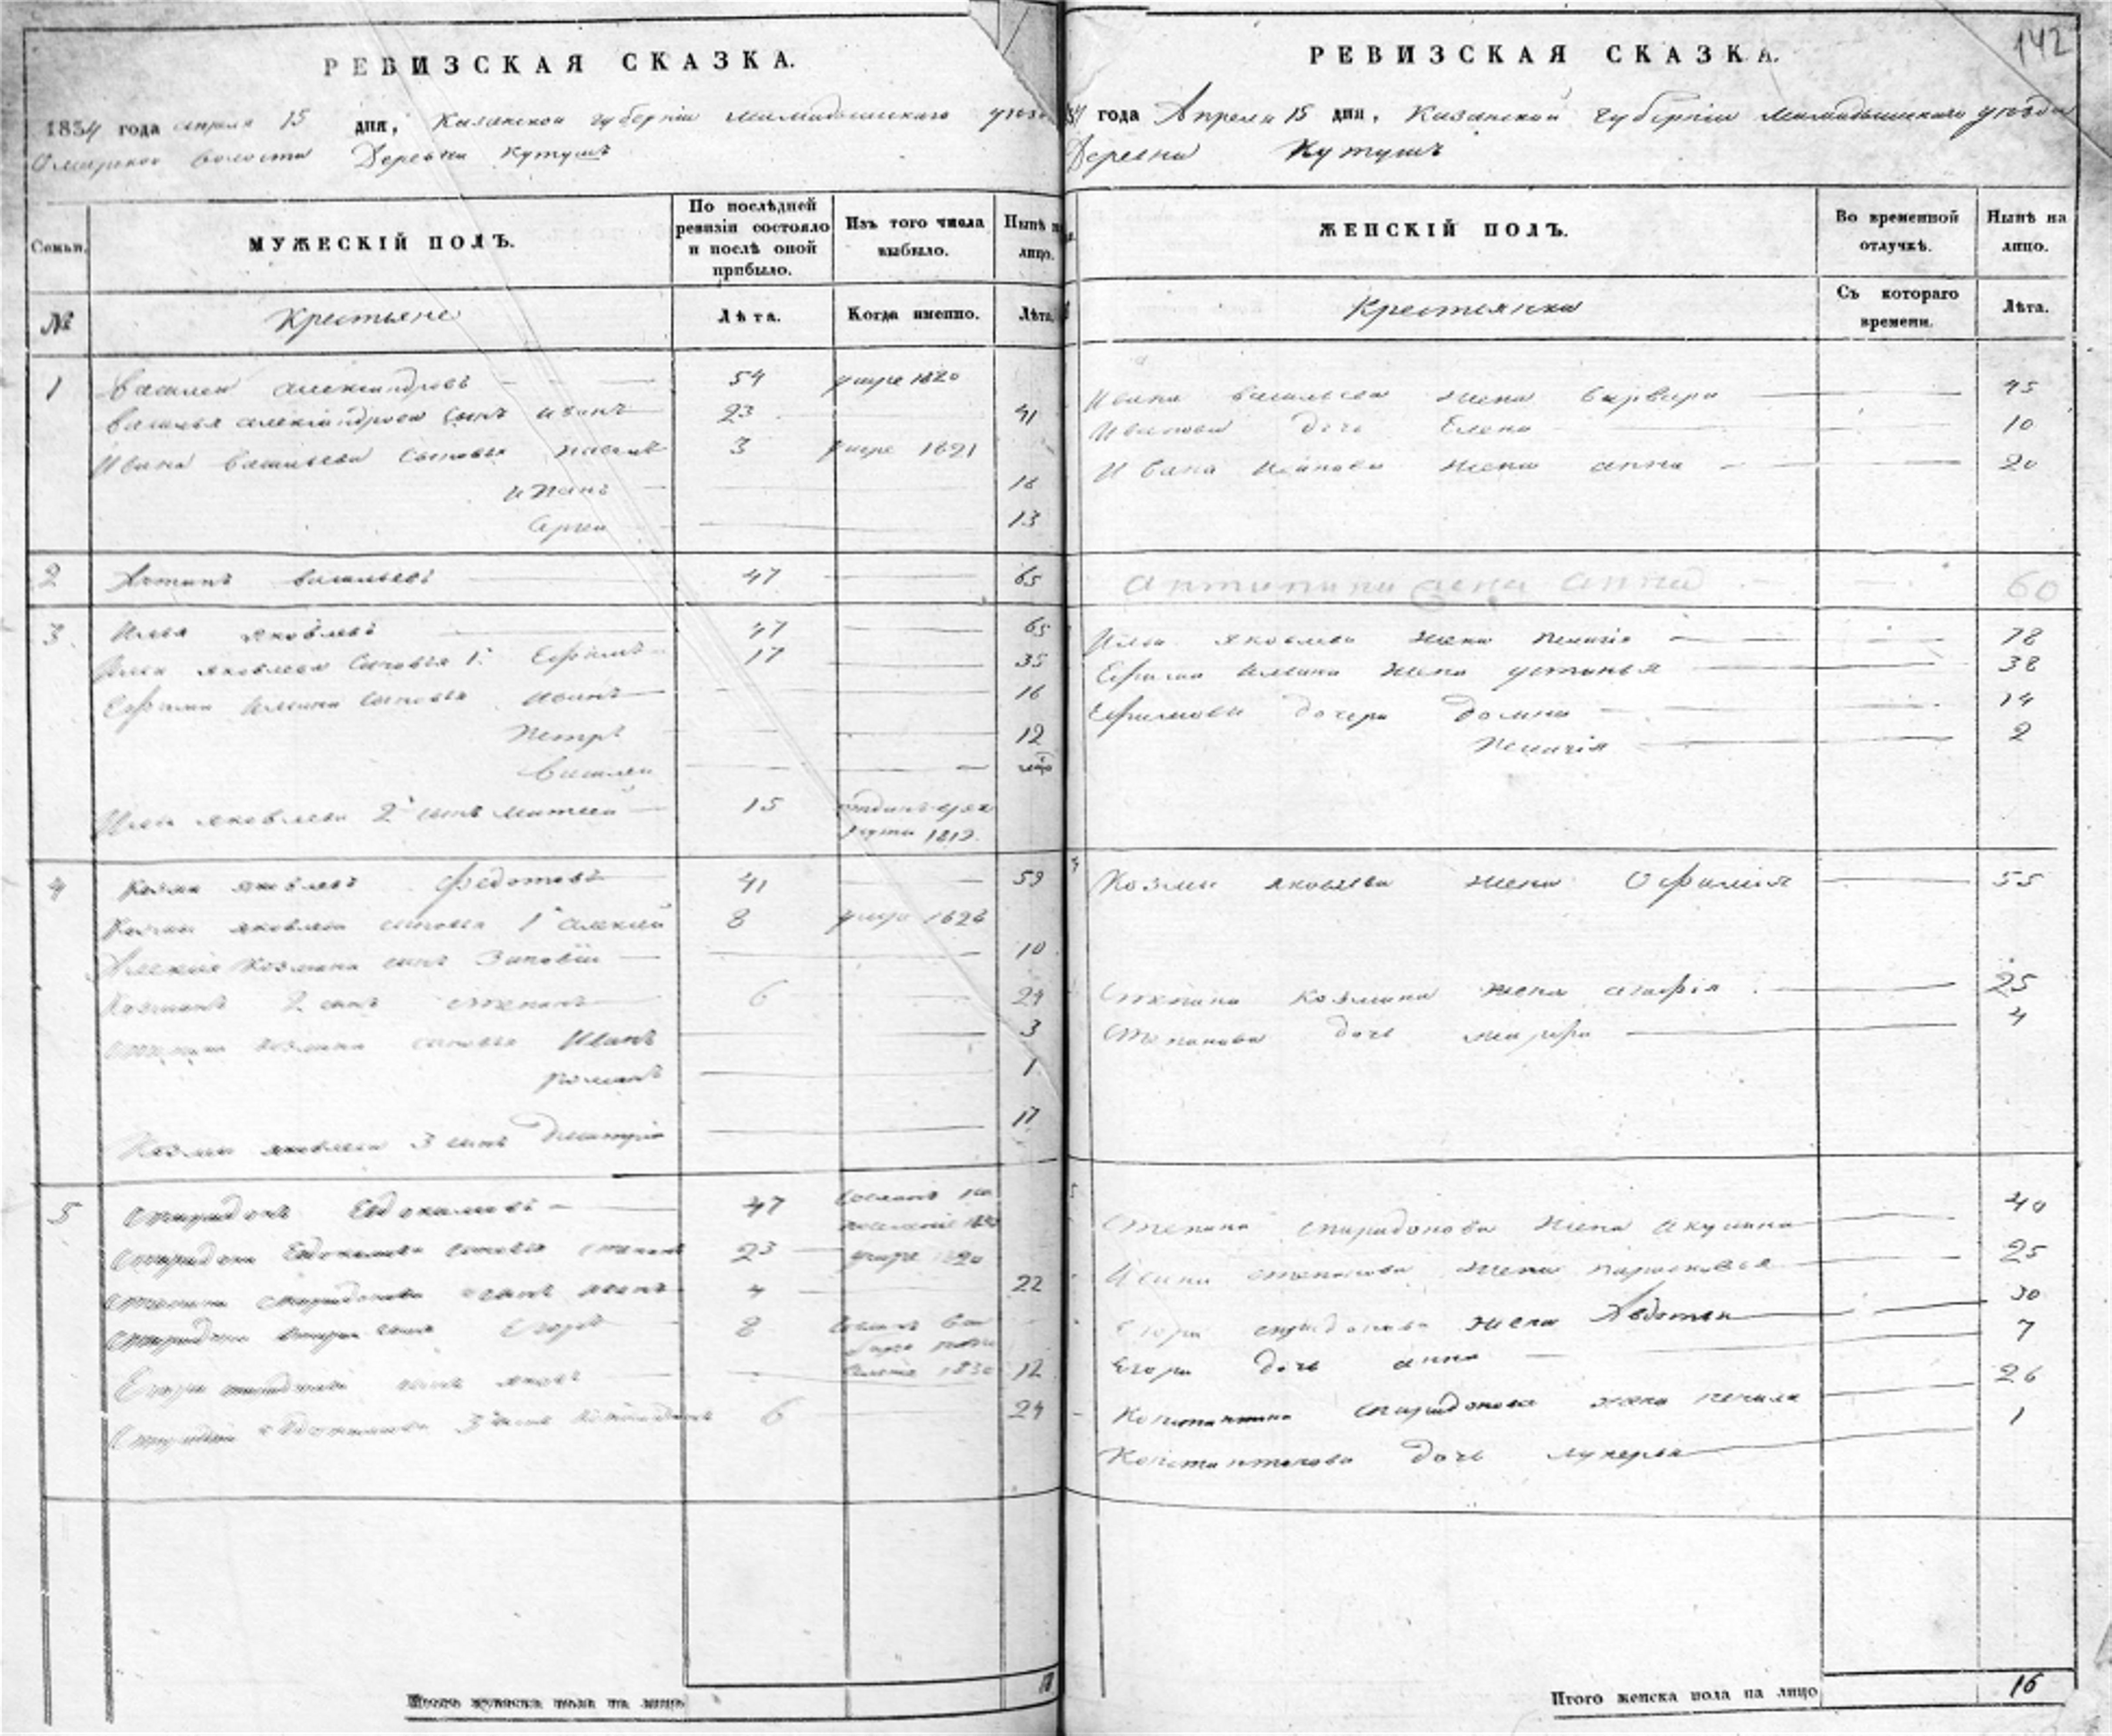 РЕВИЗСКАЯ СКАЗКА.
1834 года апреля 15 дня, Казанской губернiи Мамадышскаго уезда
Омарской волости Деревни Кутушъ
Семьи.
МУЖЕСКIЙ ПОЛЪ.
По послѣдней ревизiи состояло и послѣ оной прибыло.
Изъ того числа выбыло.
Нынѣ на лицо.
№
Крестьяне
Лѣта.
Когда именно.
Лѣта.
1 Василей Александровъ 54 умре 1820
Василья Александрова сынъ Иванъ 23 41
Ивана Васильева сыновья 3 умре 1821
Иванъ 18
Сергей 13
2 Антипъ Васильевъ 47 65
3 Илья Яковлевъ 47 65
Ильи Яковлева сыновья 1й Ефимъ 17 35
Ефима Ильина сыновья Иванъ 16
Петръ 12
Василей
Ильи Яковлева 2й сынъ Матвей 15
4 Козма Яковлевъ Федотовъ 41 59
Козмы Яковлева сыновья 1й Алексей 8 умре 1826
Алексея Козмина сынъ Зиновiй 10
Козминъ 2 сынъ Степанъ 6 24
Степана Козмина сыновья Иванъ 3
Романъ 1
Козмы Яковлева 3 сынъ Дмитрiй 17
5 Спиридонъ Евдокимовъ 47 сосланъ на поселенiе 1830
Спиридона Евдокимова сыновья Степанъ 23 умре 1820
Степана Спиридонова сынъ Иванъ 4 22
Спиридона второй сынъ Егоръ 8 сосланъ
1830
Егора Спиридонова сынъ Яковъ 12
Спиридона Евдокимова 3й сынъ 6 24
Итого мужеска пола на лицо
142
РЕВИЗСКАЯ СКАЗКА.
года Апреля 15 дня, Казанской Губернiи Мамадышскаго уѣзда
Деревни Кутушъ
ЖЕНСКIЙ ПОЛЪ.
Во временной отлучкѣ.
Нынѣ на лицо.
Крестьянки
Съ котораго времени.
Лѣта.
Ивана Васильева жена Варвара 45
Иванова дочь Елена 10
Ивана Иванова жена Анна 20
Антипина жена Анна 60
Ильи Яковлева жена Пелагiя 78
Ефима Ильина жена Устинья 38
Ефимовы дочери Домна 14
Пелагiя 2
Козмы Яковлева жена Офимiя 55
Степана Козмина жена Агафiя 25
Степанова дочь Марфа 4
Степана Спиридонова жена Акулина 40
Ивана Степанова жена Парасковья 25
Егора Спиридонова жена Авдотья 30
Егора дочь Анна 7
Константина Спиридонова жена 26
Константинова дочь Лукерья 1
Итого женска пола на лицо 16